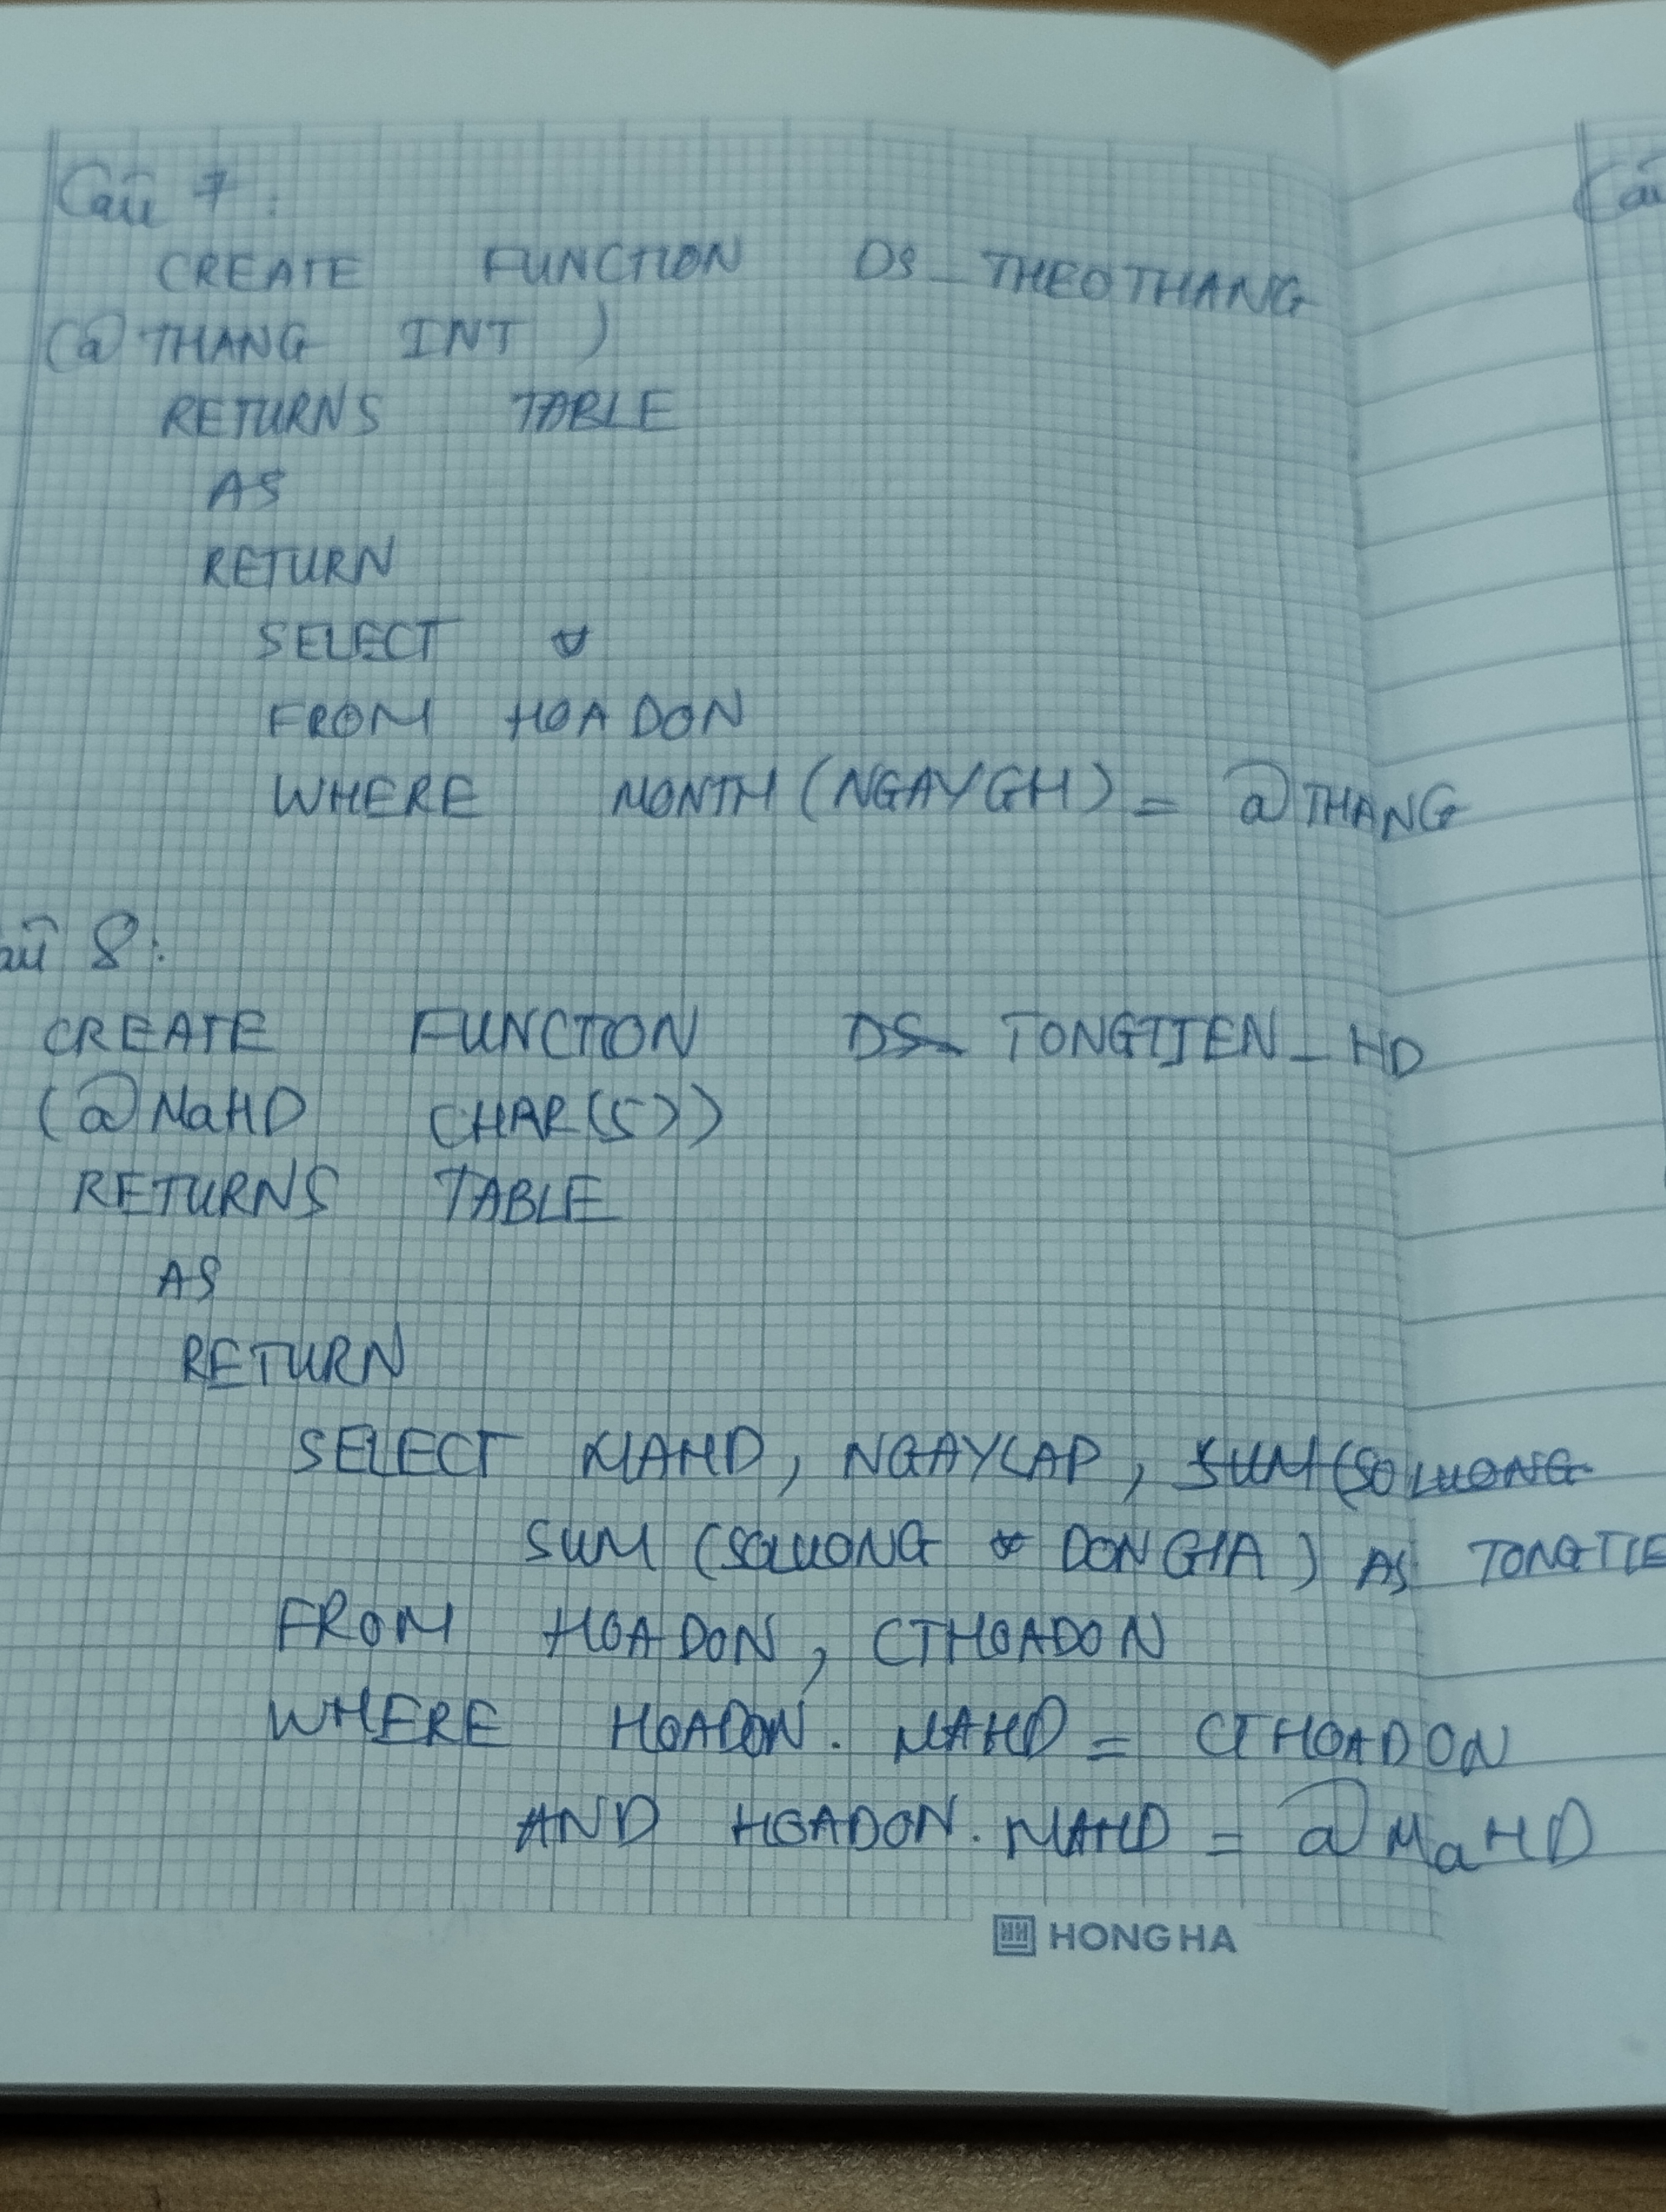 Câu 7:
CREATE FUNCTION DS_THEOTHANG
(@THANG INT)
RETURNS TABLE
AS
RETURN
SELECT *
FROM HOADON
WHERE MONTH(NGAYGH) = @THANG
âu 8:
CREATE FUNCTION DS_TONGTIEN_HD
(@MaHD CHAR(5))
RETURNS TABLE
AS
RETURN
SELECT MAHD, NGAYLAP, SUM(SOLUONG
SUM(SOLUONG * DONGIA) AS TONGTIE
FROM HOADON, CTHOADON
WHERE HOADON.MAHD = CTHOADON
AND HOADON.MAHD = @MaHD
HONG HA